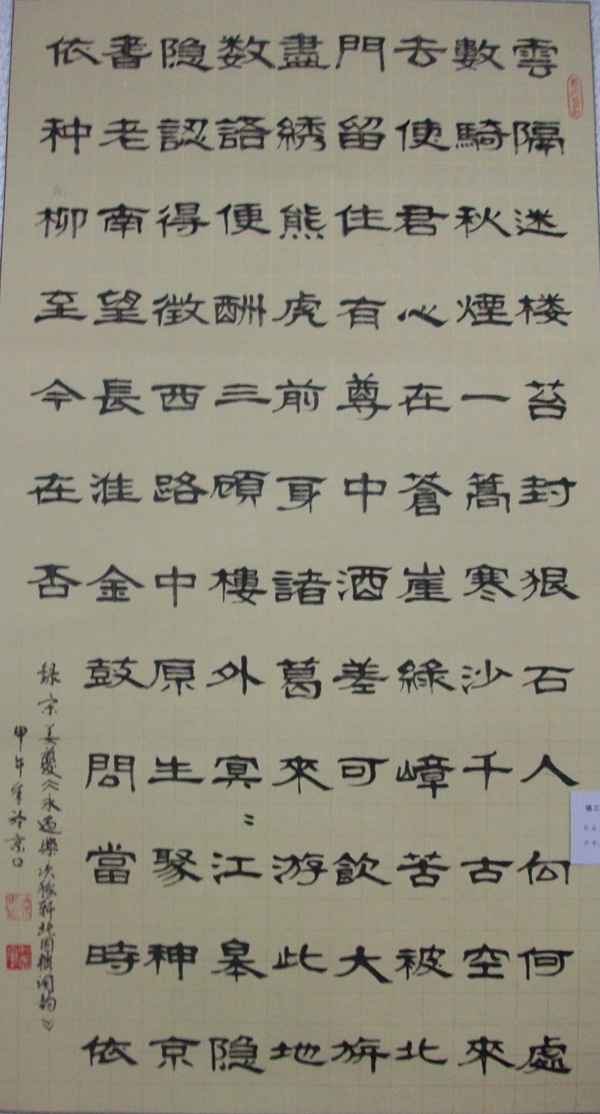 雲隔迷楼苔封狠石人向何處
數騎秋煙一蒿寒沙千古空來
去使君心在蒼崖綠嶂苦被北
門留住有尊中酒差可飲大旂
盡綉熊虎前身諸葛來游此地
数語便酬三顧樓外冥〻江皋隐
隐認得徵西路中原生聚神京
耆老南望長淮金鼓問當時依
依种柳至今在否
録宋姜夔《永遇樂次稼轩北固樓词韵》
甲午年於京口
镇江